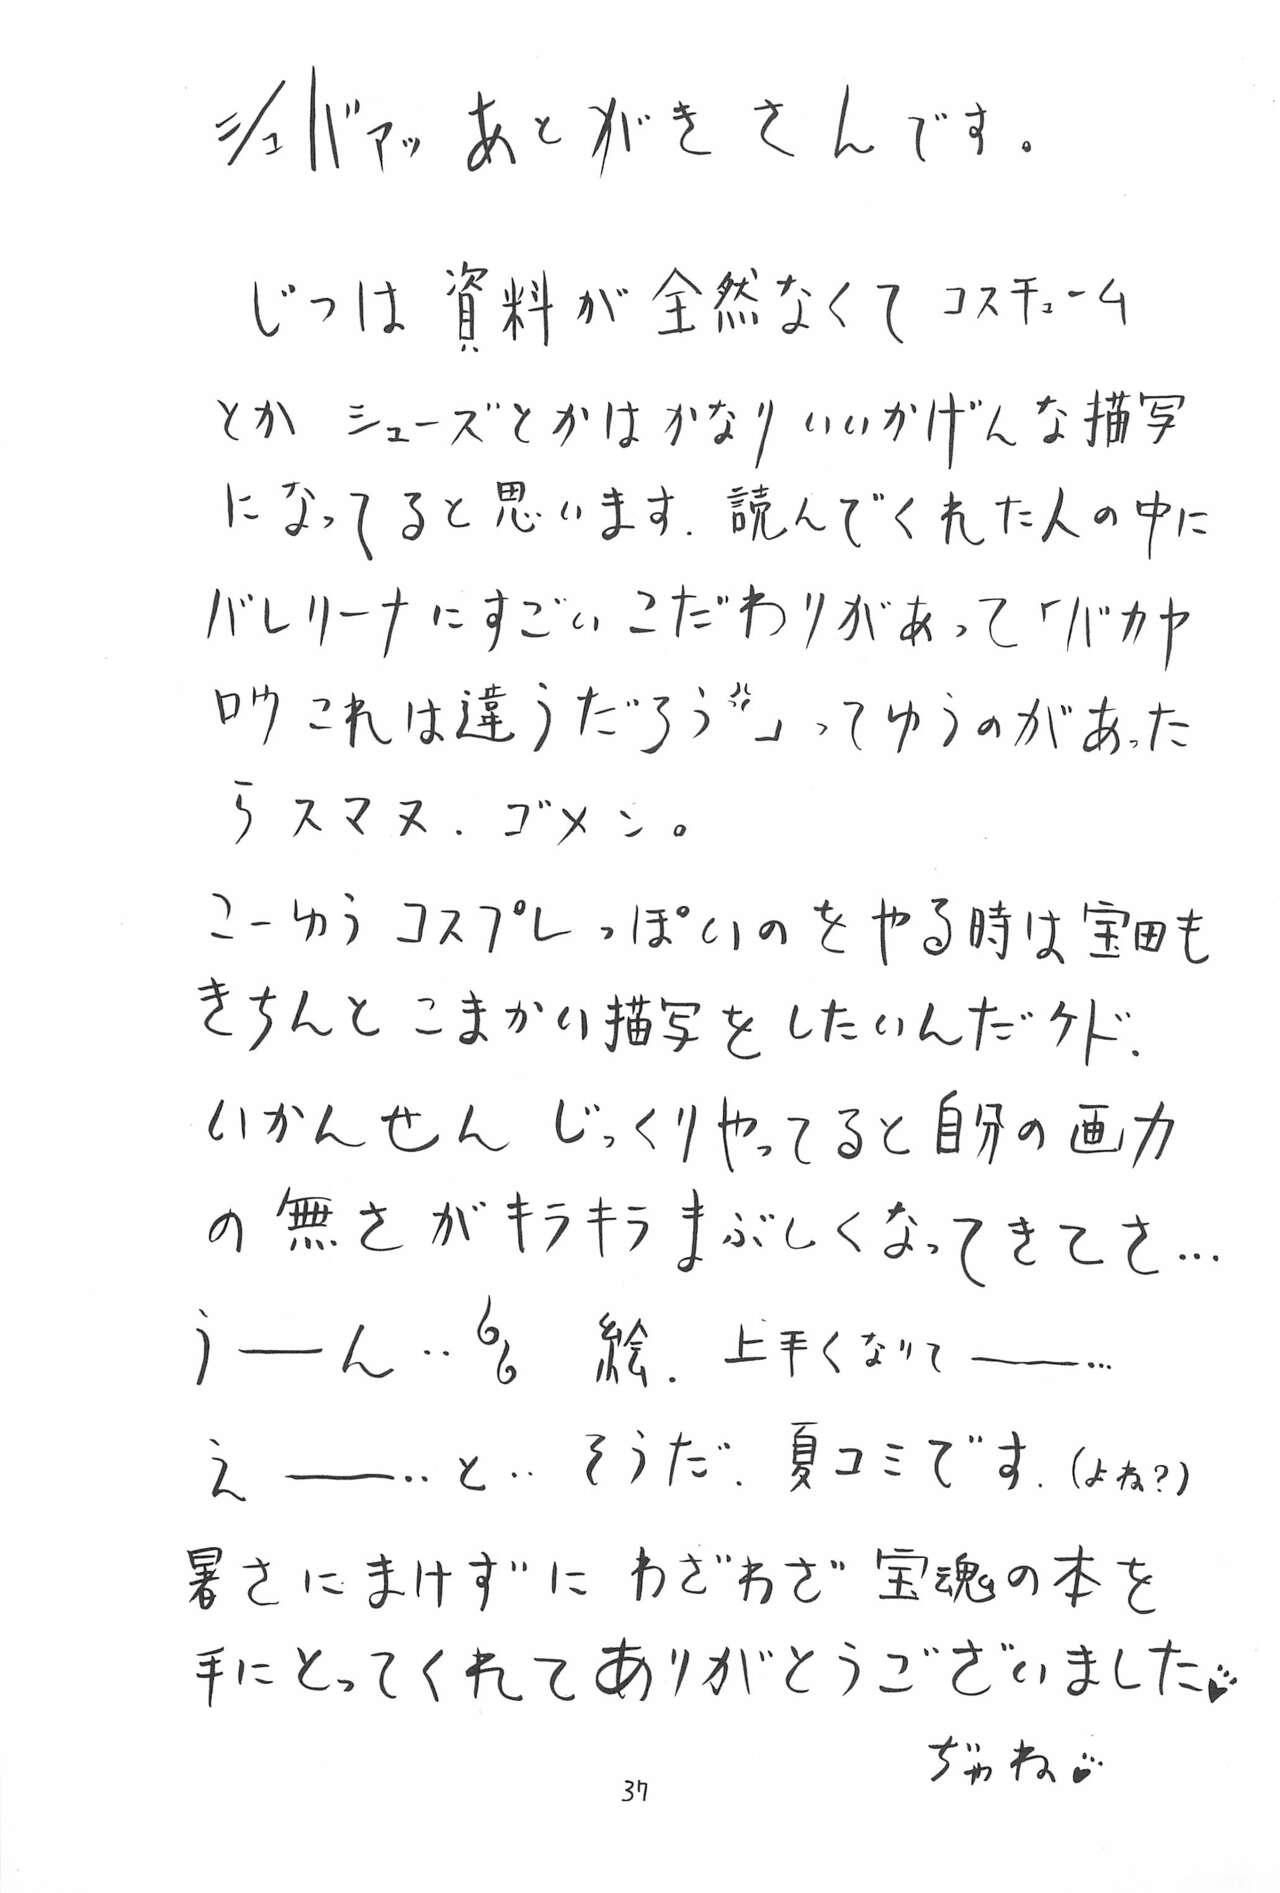 シュバァッ あとがきさんです。
じつは資料が全然なくてコスチューム
とか シューズとかはかなりいいかげんな描写
になってると思います. 読んでくれた人の中に
バレリーナにすごいこだわりがあって「バカヤ
ロウこれは違うだろう」ってゆうのがあった
らスマヌ. ゴメン。
こーゆうコスプレっぽいのをやる時は宝田も
きちんとこまかい描写をしたいんだケド.
いかんせん じっくりやってると自分の画力
の無さがキラキラまぶしくなってきてさ…
うーん‥ 絵. 上手くなりてー…
えー‥と‥ そうだ. 夏コミです. (よね?)
暑さにまけずに わざわざ 宝魂の本を
手にとってくれてありがとうございました♥
ぢゃね♥
37